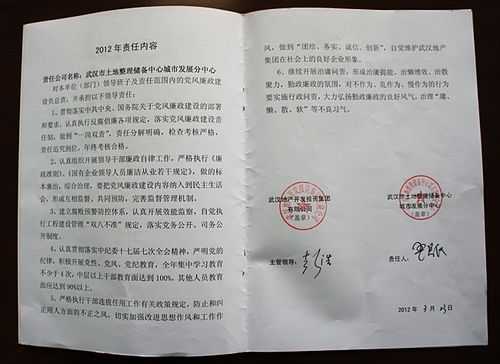 2012年责任内容
责任公司名称：武汉市土地整理储备中心城市发展分中心
对本单位（部门）领导班子及责任范围内的党风廉政建
设负总责，并承担以下领导责任：
1、贯彻落实中共中央、国务院关于党风廉政建设的部署
和要求，认真执行反腐倡廉各项规定，落实党风廉政建设责
任制，做到“一岗双责”，责任分解明确，检查考核严格，
责任追究到位，年终考核合格。
2、认真组织开展领导干部廉政自律工作，严格执行《廉
政准则》、《国有企业领导人员廉洁从业若干规定》，做的标
本兼治，综合治理，要把党风廉政建设内容纳入到民主生活
会，形成互相监督、共同预防，完善监督管理机制。
3、建立腐败预警防控体系，认真开展效能监察，自觉执
行工程建设管理“双八不准”规定，落实党务公开、司务公
开制度。
4、认真贯彻落实中纪委十七届七次全会精神，严明党的
纪律，积极开展党性、党风、党纪教育，全年集中学习教育
不少于4次，中层以上干部教育面达到100%，其他人员教育
面应达到90%以上。
5、严格执行干部选拔任用工作有关政策规定，防止和纠
正用人方面的不正之风。切实加强改进思想作风和工作作
风，做到“团结、务实、诚信、创新”，自觉维护武汉地产
集团在社会上的良好企业形象。
6、继续开展治庸问责，形成治庸提能、治懒增效、治散
聚力，勤政廉政的氛围，对不作为、乱作为、慢作为的行为
要实施行政问责，大力弘扬勤政廉政的良好风气，治理“庸、
懒、散、软”等不良习气。
武汉地产开发投资集团
有限公司
（盖章）
武汉市土地整理储备中心
城市发展分中心
（盖章）
主管领导：
责任人：
2012年3月23日